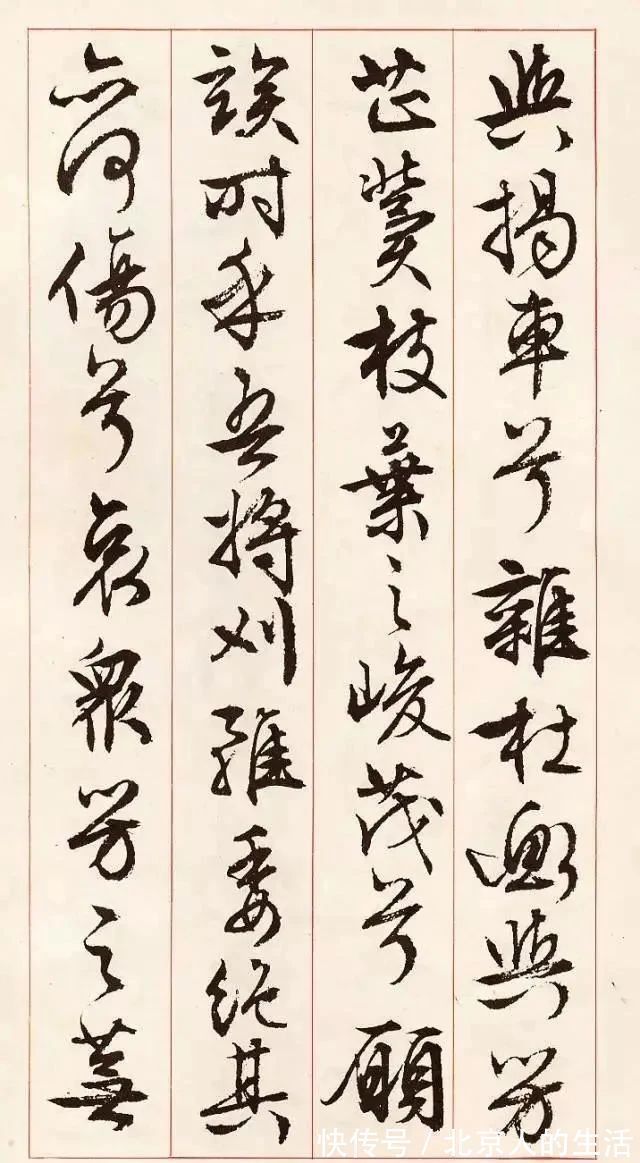 與揭車兮雜杜衡與芳
芷冀枝葉之峻茂兮願
竢時乎吾將刈雖萎絕其
亦何傷兮哀衆芳之蕪
快传号／北京人的生活